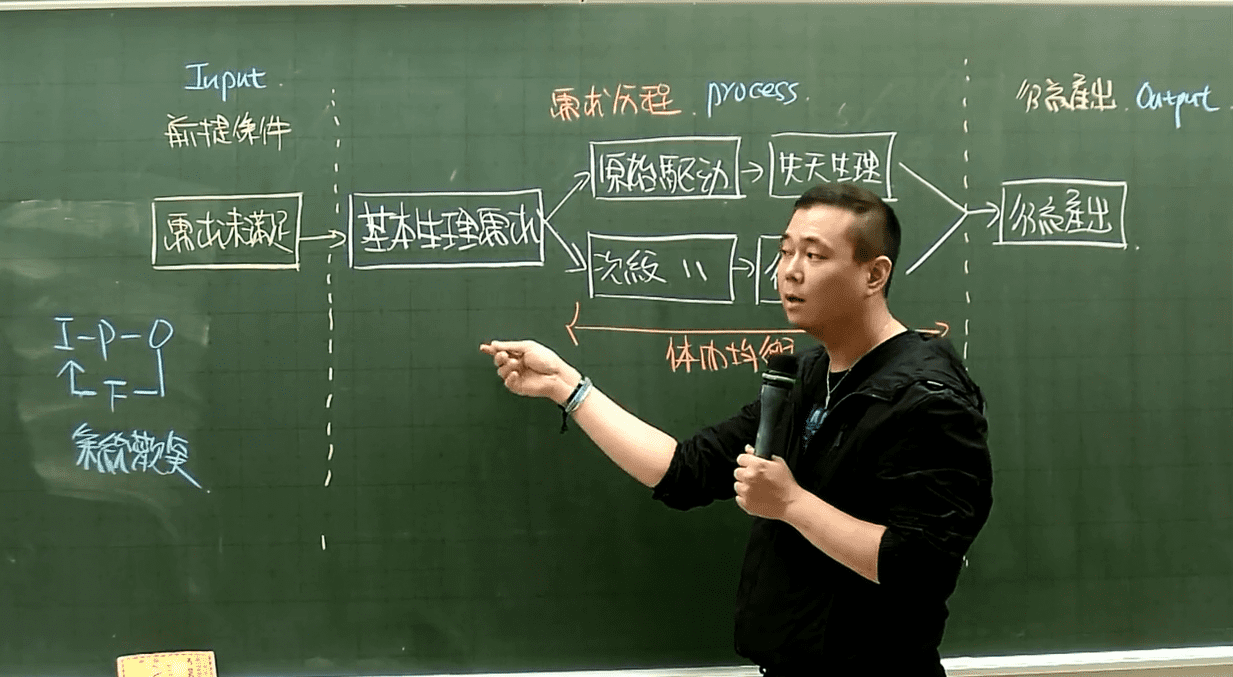 Input
前提条件
需求历程 process
行為產出 Output
需求未滿足
基本生理需求
原始駆动
失天生理
次級 〃
行為產出
I-P-O
F
体内均衡
系統散奐